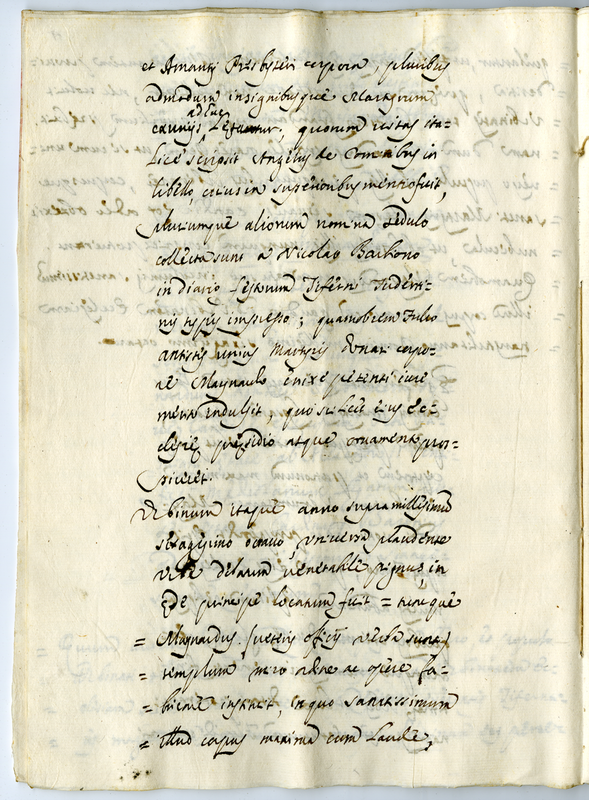 et Amantij Presbiteri corpora, pluribus
admodum insignibusque Martyrum
exuvijs adhuc, quorum vitas ita-
licè scripsit Angelus de Comitibus in
libello, cuius in superioribus mentio fuit,
plurimumque aliorum nomina sedulo
collecta sunt à Nicolao Barbono
in diario Tiferni
typis impresso; quamobrem Fulco
antistes unius Martyris Donati corpo-
re Maynardo enixe petenti iure
merito indulsit, quo scilicet eius Ec-
clesię pręsidio atque ornamento pros-
piceret.
Urbinum itaque anno supra millesimũ
sexagesimo octavo, universa plaudente
urbe delatum venerabile pignus, in
ęde principe locatum fuit = tunc que
= Maynardus (veteris officij verba sunt)
= templum miro ordine ac opere fa-
= bricare instituit, in quo sanctissimum
= illud corpus maxima cum laude,